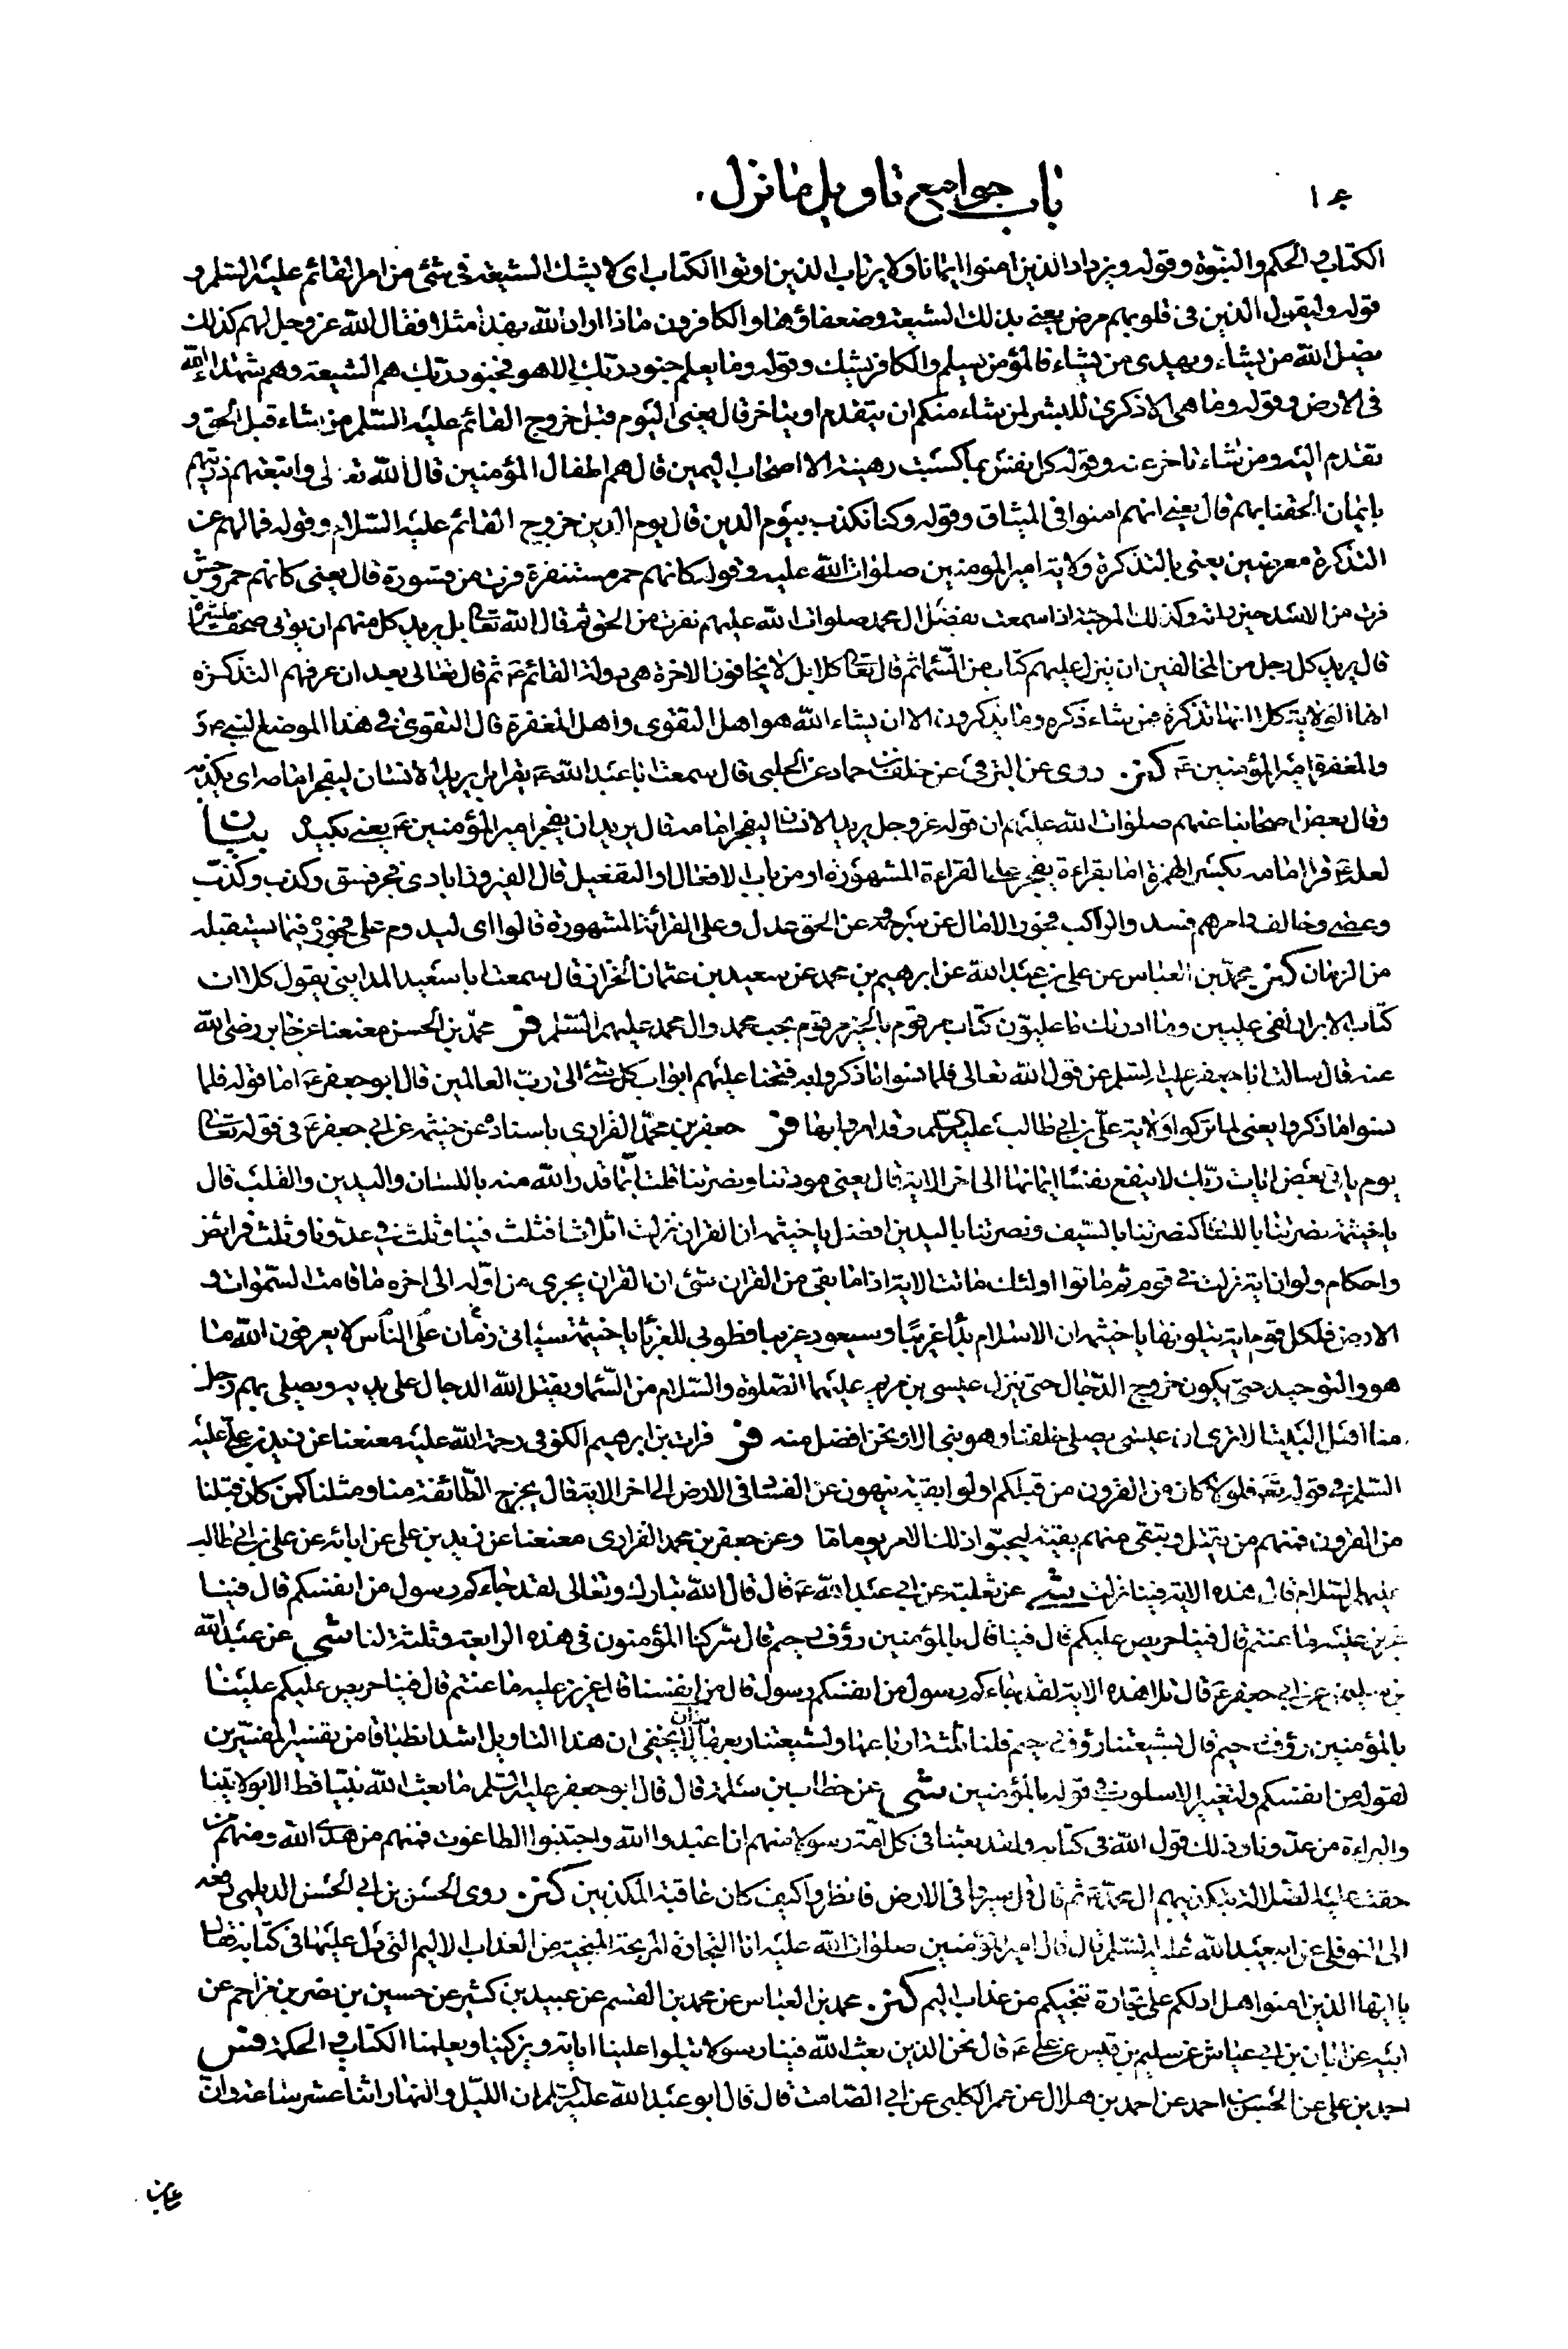 باب جوامع تاويل ما نزل
الكتاب والحكم والنبوة وقوله ويزداد الذين امنوا ايمانا ولا يرتاب الذين اوتوا الكتاب اى لا يشك الشيعة فى شئ من امر القائم عليه السلم و
قوله وليقول الذين فى قلوبهم مرض يعنى بذلك الشيعة وضعفاؤها والكافرون ماذا اراد الله بهذا مثلا فقال الله عز وجل لهم كذلك
يضل الله من يشاء ويهدى من يشاء فالمؤمن يسلم والكافر يشك وقوله وما يعلم جنود ربك الا هو فجنود ربك هم الشيعة وهم شهداء الله
فى الارض وقوله وما هى الا ذكرى للبشر لمن شاء منكم ان يتقدم او يتاخر قال يعنى اليوم قبل خروج القائم عليه السلم من شاء قبل الحق و
تقدم اليه ومن شاء تاخر عنه وقوله كل نفس بما كسبت رهينة الا اصحاب اليمين قال هم اطفال المؤمنين قال الله تعالى واتبعتهم ذريتهم
بايمان الحقنا بهم قال يعنى انهم امنوا فى الميثاق وقوله وكنا نكذب بيوم الدين قال يوم الدين خروج القائم عليه السلام وقوله فما لهم عن
التذكرة معرضين يعنى بالتذكرة ولاية امير المومنين صلوات الله عليه وقوله كانهم حمر مستنفرة فرت من قسورة قال يعنى كانهم حمر وحش
فرت من الاسد حين راته وكذلك المرجئة اذا سمعت بفضل ال محمد صلوات الله عليهم نفرت من الحق ثم قال الله تعا بل يريد كل منهم ان يؤتى صحفا منشرة
قال يريد كل رجل من المخالفين ان ينزل عليهم كتاب من السماء ثم قال تعا كلا بل لا يخافون الاخرة هى دولة القائم ع ثم قال تعالى بعد ان عرفهم التذكرة
انها الولاية كلا انها تذكرة فمن شاء ذكره وما يذكرون الا ان يشاء الله هو اهل التقوى واهل المغفرة قال التقوى فى هذا الموضع النبى ص و
والمغفرة امير المؤمنين ع كنز روى عن البرقى عن خلف عن حماد عن الحلبى قال سمعت ابا عبد الله ع يقرا بل يريد الانسان ليفجر امامه اى يكذبه
وقال بعض اصحابنا عنهم صلوات الله عليهم ان قوله عز وجل يريد الانسان ليفجر امامه قال يريد ان يفجر امير المؤمنين ع يعنى يكيده بيان
لعله ع قرا امامه بكسر الهمزة اما بقراءة يفجر على القراءة المشهورة او من باب الافعال او التفعيل قال الفيروزابادى فجر فسق وكذب وكذب
وعصى وخالف وامرهم فسد والراكب فجورا مال عن سرجه وعن الحق عدل وعلى القرائة المشهورة قالوا اى ليدوم على فجوره فيما يستقبله
من الزمان كنز محمد بن العباس عن على بن عبد الله عن ابرهيم بن محمد عن سعيد بن عثمان الخزاز قال سمعت ابا سعيد المداينى يقول كلا ان
كتاب الابرار لفى عليين وما ادريك ما عليون كتاب مرقوم بالخير مرقوم بحب محمد وال محمد عليهم السلم فر محمد بن الحسن معنعنا عن جابر رضى الله
عنه قال سالت ابا جعفر عليه السلم عن قول الله تعالى فلما نسوا ما ذكروا به فتحنا عليهم ابواب كل شئ الى رب العالمين قال ابو جعفر ع اما قوله فلما
نسوا ما ذكروا يعنى لما تركوا ولاية على بن ابى طالب عليه السلم وقد امروا بها فر جعفر بن محمد الفزارى باسناده عن خيثمة عن ابى جعفر ع فى قوله تعا
يوم ياتى بعض ايات ربك لا ينفع نفسا ايمانها الى اخر الاية قال يعنى مودتنا ونصرتنا قلت انما قدر الله منه باللسان واليدين والقلب قال
يا خيثمة نصرتنا باللسان كنصرتنا بالسيف ونصرتنا باليدين افضل يا خيثمة ان القران نزلت اثلاثا فثلث فينا وثلث فى عدونا وثلث فرائض
واحكام ولو ان اية نزلت فى قوم ثم ماتوا اولئك ماتت الاية اذا ما بقى من القران شئ ان القران يجرى من اوله الى اخره ما قامت السموات و
الارض فلكل قوم اية يتلونها يا خيثمة ان الاسلام بدأ غريبا وسيعود غريبا فطوبى للغربا يا خيثمة سياتى زمان على الناس لا يعرفون الله ما
هو والتوحيد حتى يكون خروج الدجال حتى ينزل عيسى بن مريم عليهما الصلوة والسلام من السماء ويقتل الله الدجال على يديه ويصلى بهم رجل
منا اهل البيت الا ترى ان عيسى يصلى خلفنا وهو نبى الا ونحن افضل منه فر فرات بن ابرهيم الكوفى رحمة الله عليه معنعنا عن زيد بن على عليه
السلم فى قوله تعا فلولا كان من القرون من قبلكم اولوا بقية ينهون عن الفساد فى الارض الى اخر الاية قال يخرج الطائفة منا ومثلنا كمن كان قبلنا
من القرون فمنهم من يقتل ويبقى منهم بقية ليحيوا ذلك الامر يوما ما وعن جعفر بن محمد الفزارى معنعنا عن زيد بن على عن ابائه عن على بن ابى طالب
عليهم السلام قال هذه الاية فينا نزلت شى عن ثعلبة عن ابى عبد الله ع قال قال الله تبارك وتعالى لقد جاءكم رسول من انفسكم قال فينا
عزيز عليه ما عنتم قال فينا حريص عليكم قال فينا قال بالمؤمنين رؤف رحيم قال شركنا المؤمنون فى هذه الرابعة وثلثة لنا شى عن عبد الله
بن سليمن عن ابى جعفر ع قال تلا هذه الاية لقد جاءكم رسول من انفسكم رسول قال من انفسنا قال عزيز عليه ما عنتم قال فينا حريص عليكم علينا
بالمؤمنين رؤف رحيم قال بشيعتنا رؤف رحيم فلنا ثلثة ارباعها ولشيعتنا ربعها بيان لا يخفى ان هذا التاويل اشد انطباقا من تفسير المفسرين
لقوله من انفسكم ولتغيير الاسلوب فى قوله بالمؤمنين شى عن خطاب بن سلمة قال قال ابو جعفر عليه السلم ما بعث الله نبيا قط الا بولايتنا
والبراءة من عدونا وذلك قول الله فى كتابه ولقد بعثنا فى كل امة رسولا منهم ان اعبدوا الله واجتنبوا الطاغوت فمنهم من هدى الله ومنهم من
حقت عليه الضلالة بتكذيبهم ال محمد ع ثم قال قل سيروا فى الارض فانظروا كيف كان عاقبة المكذبين كنز روى الحسن بن ابى الحسن الديلمى رفعه
الى النوفلى عن ابى عبد الله عليه السلم قال قال امير المؤمنين صلوات الله عليه انا التجارة المربحة المنجية من العذاب الاليم التى دل عليها فى كتابه فقال
يا ايها الذين امنوا هل ادلكم على تجارة تنجيكم من عذاب اليم كنز محمد بن العباس عن محمد بن القسم عن عبيد بن كثير عن حسين بن نصر بن مزاحم عن
ابيه عن ابان بن ابى عياش عن سليم بن قيس عن على ع قال نحن الذين بعث الله فينا رسولا يتلوا علينا اياته ويزكينا ويعلمنا الكتاب والحكمة فس
احمد بن على عن الحسين بن احمد عن احمد بن هلال عن عمر الكلبى عن ابى الصامت قال قال ابو عبد الله عليه السلم ان الليل والنهار اثنا عشر ساعة وان